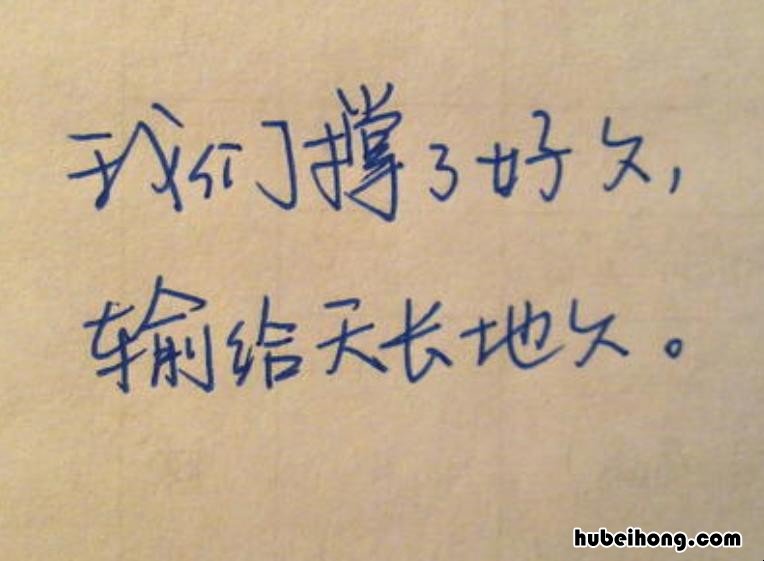 我们撑了好久,
输给天长地久。
hubeihong.com